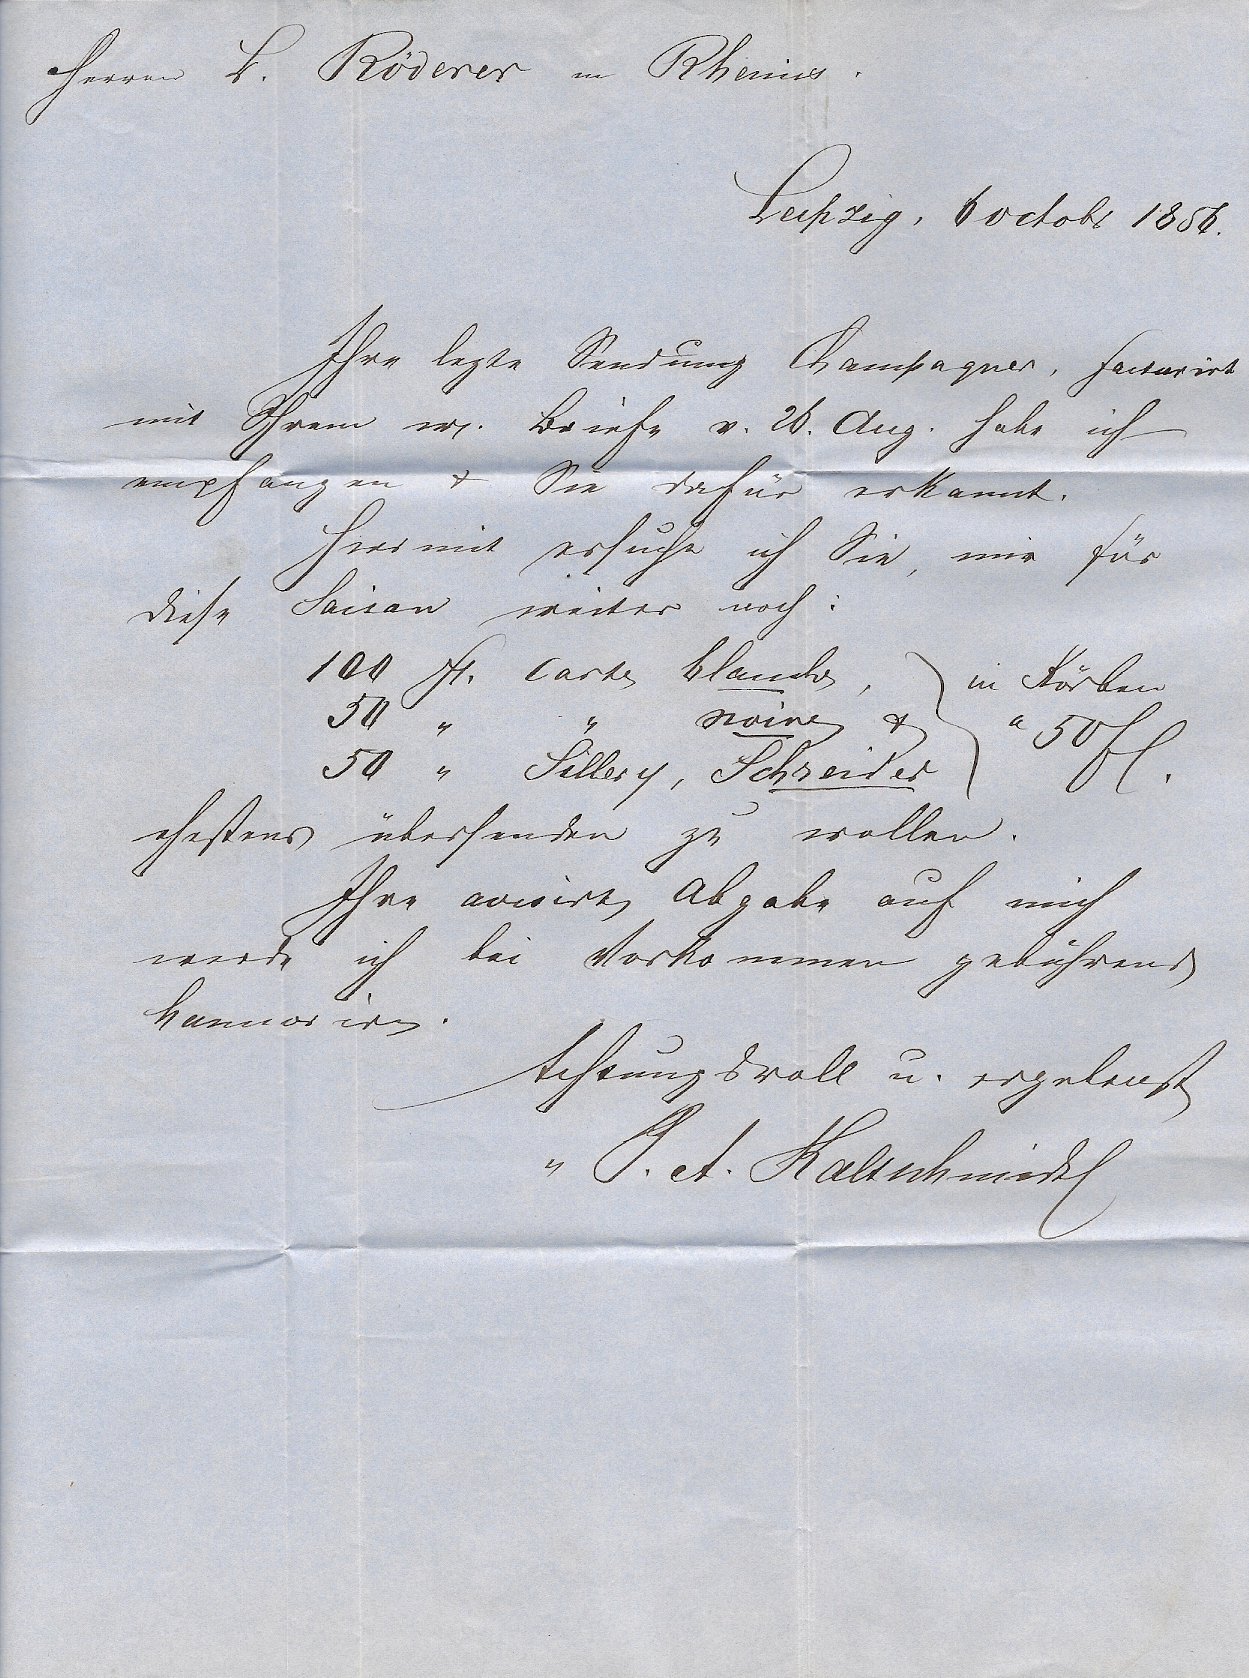 Herrn L. Röderer in Rheims.
Leipzig, 6 octobr 1856.
Ihre lezte Sendung Champagner, facturirt
mit Ihrem w. Briefe v. 26. Aug. habe ich
empfangen & Sie dafür erkannt.
Hiermit ersuche ich Sie, mir für
diese Saison weiter noch:
100 Fl. carte blanche, } in Körben
50 " " noire & } a 50 Fl.
50 " Sillery, Schneider
ehestens übersenden zu wollen.
Ihre avisirte Abgabe auf mich
werde ich bei Vorkommen gebührend
honnoriren.
Achtungsvoll u. ergebenst
A. Kaltschmidt